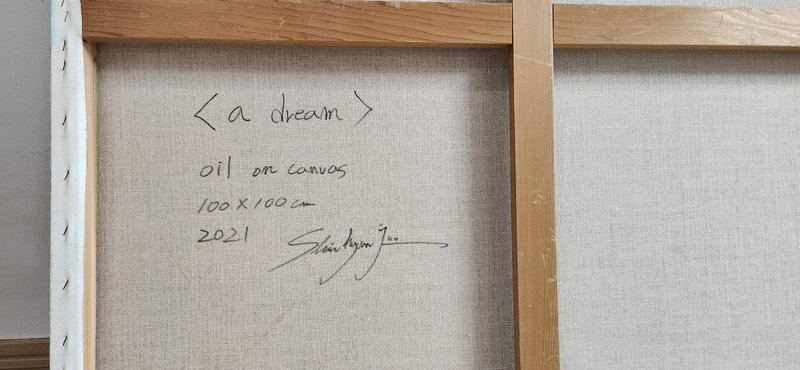 < a dream >
oil on canvas
100 x 100 cm
2021 Shin hyun joo